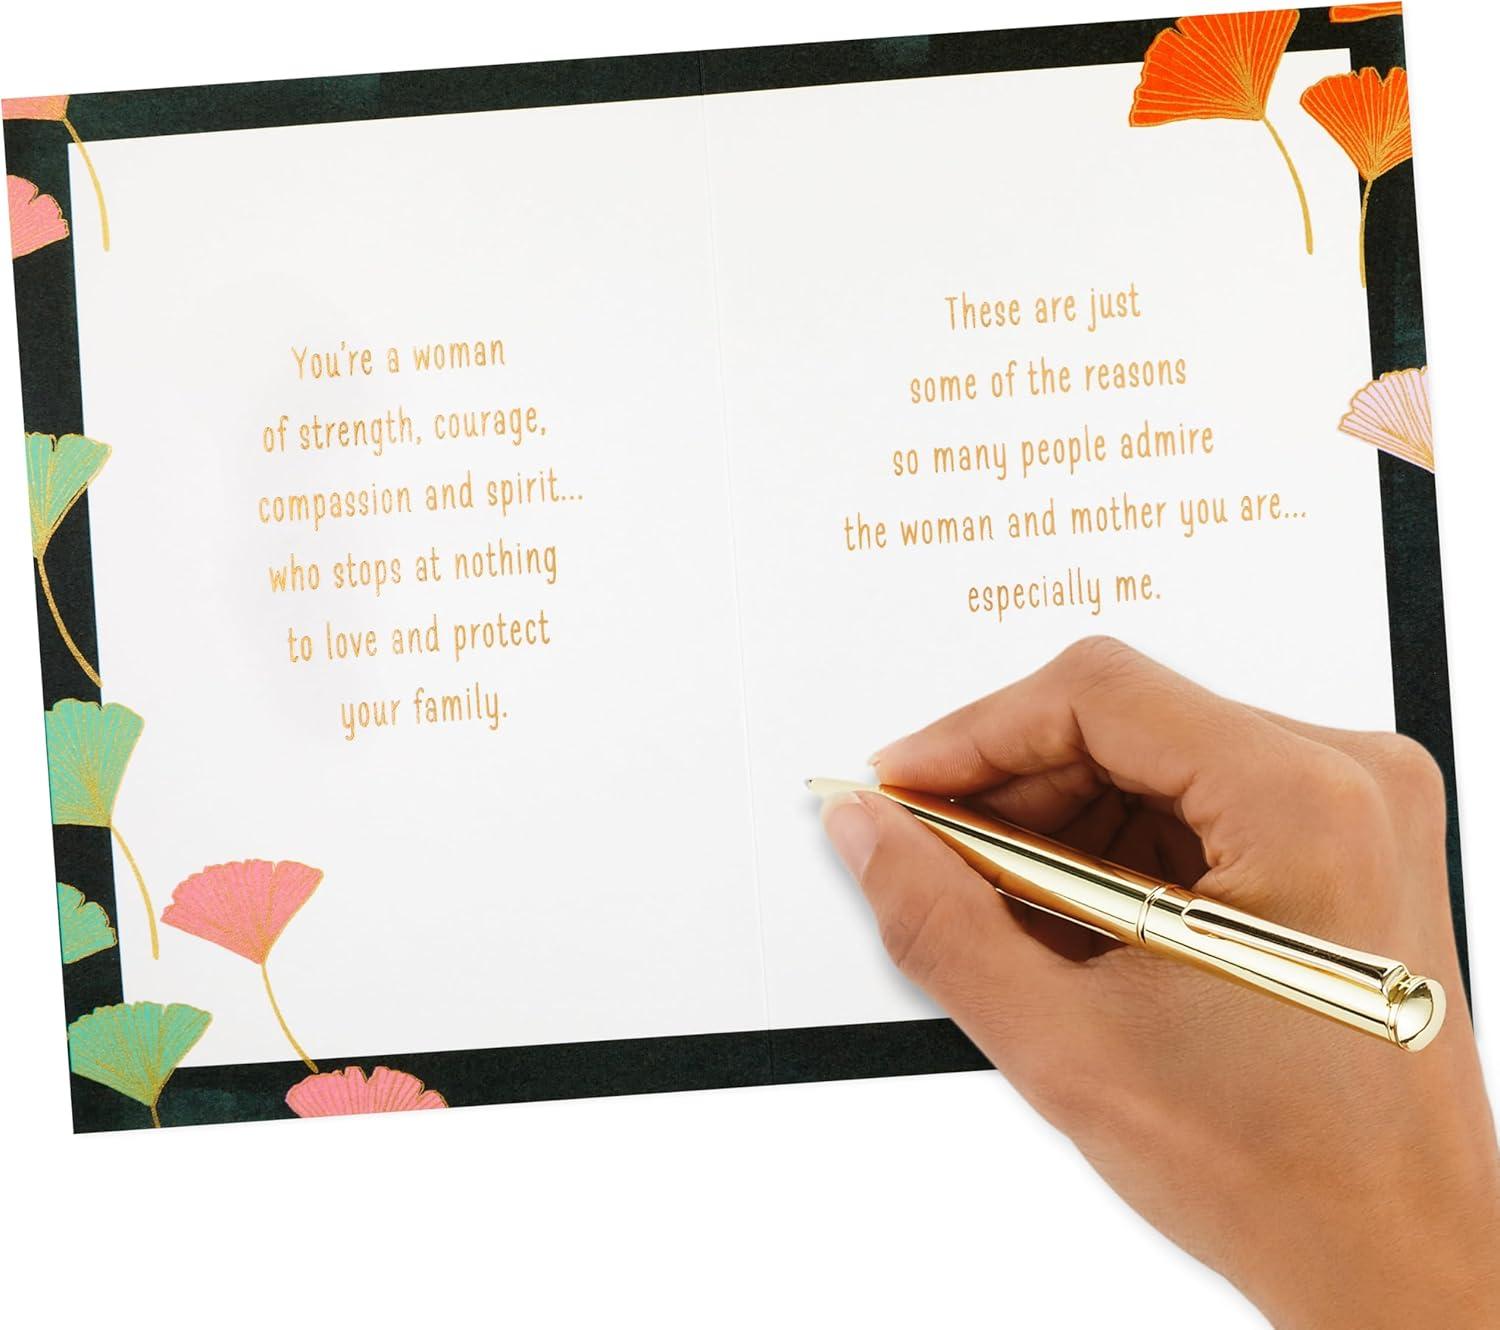 You're a woman
of strength, courage,
compassion and spirit...
who stops at nothing
to love and protect
your family.
These are just
some of the reasons
so many people admire
the woman and mother you are...
especially me.